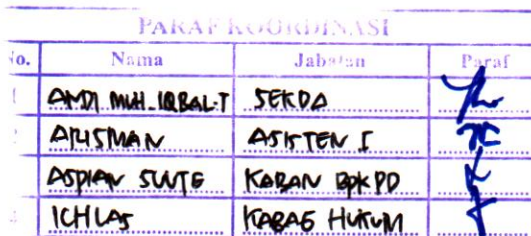 PARAF KOORDINASI
No. Nama Jabatan Paraf
1 ANDI MUH. IQBAL.T SEKDA
2 ARISMAN ASISTEN I
ASPIAN SUUTE KABAN BPKPD
4 ICHLAS KABAG HUKUM